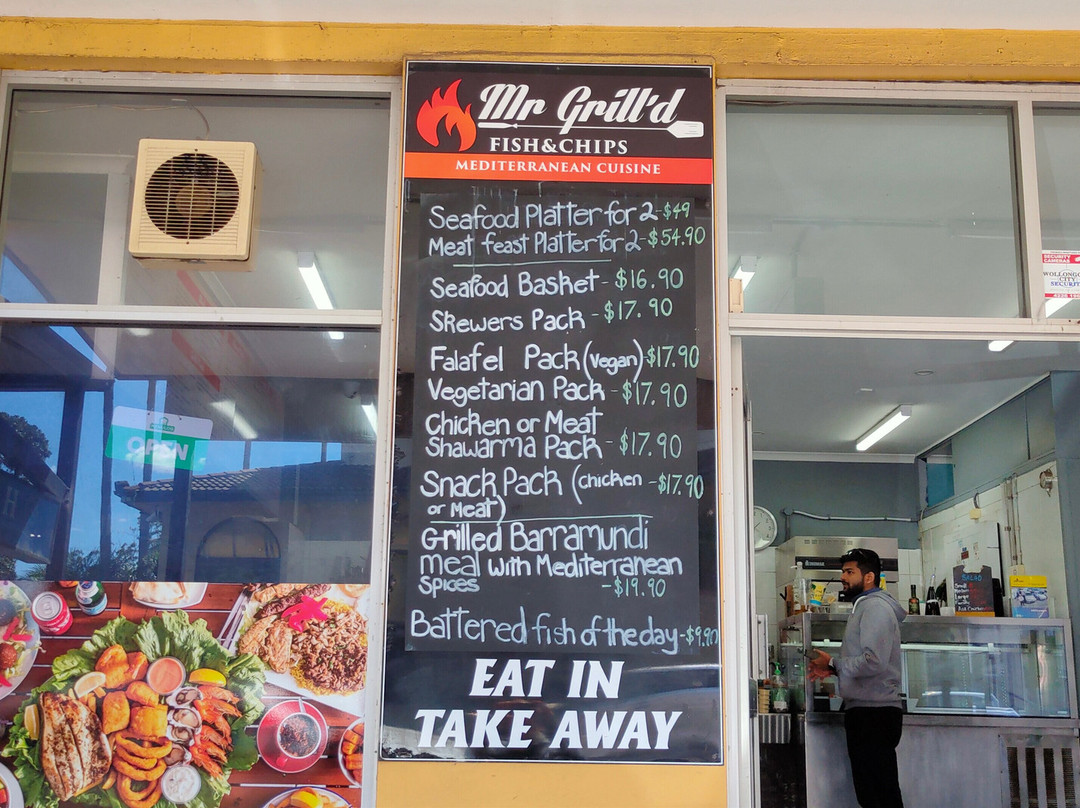 Mr Grill'd
FISH&CHIPS
MEDITERRANEAN CUISINE
Seafood Platter for 2-$49
Meat feast Platter for 2-$54.90
Seafood Basket-$16.90
Skewers Pack-$17.90
Falafel Pack (vegan)-$17.90
Vegetarian Pack-$17.90
Chicken or Meat
Shawarma Pack-$17.90
Snack Pack (chicken -$17.90
or Meat)
Grilled Barramundi
meal with Mediterranean
Spices -$19.90
Battered fish of the day-$9.90
EAT IN
TAKE AWAY
OPEN
SECURITY
CAMERAS
WOLLONGONG
CITY
SECURITY
SALAD